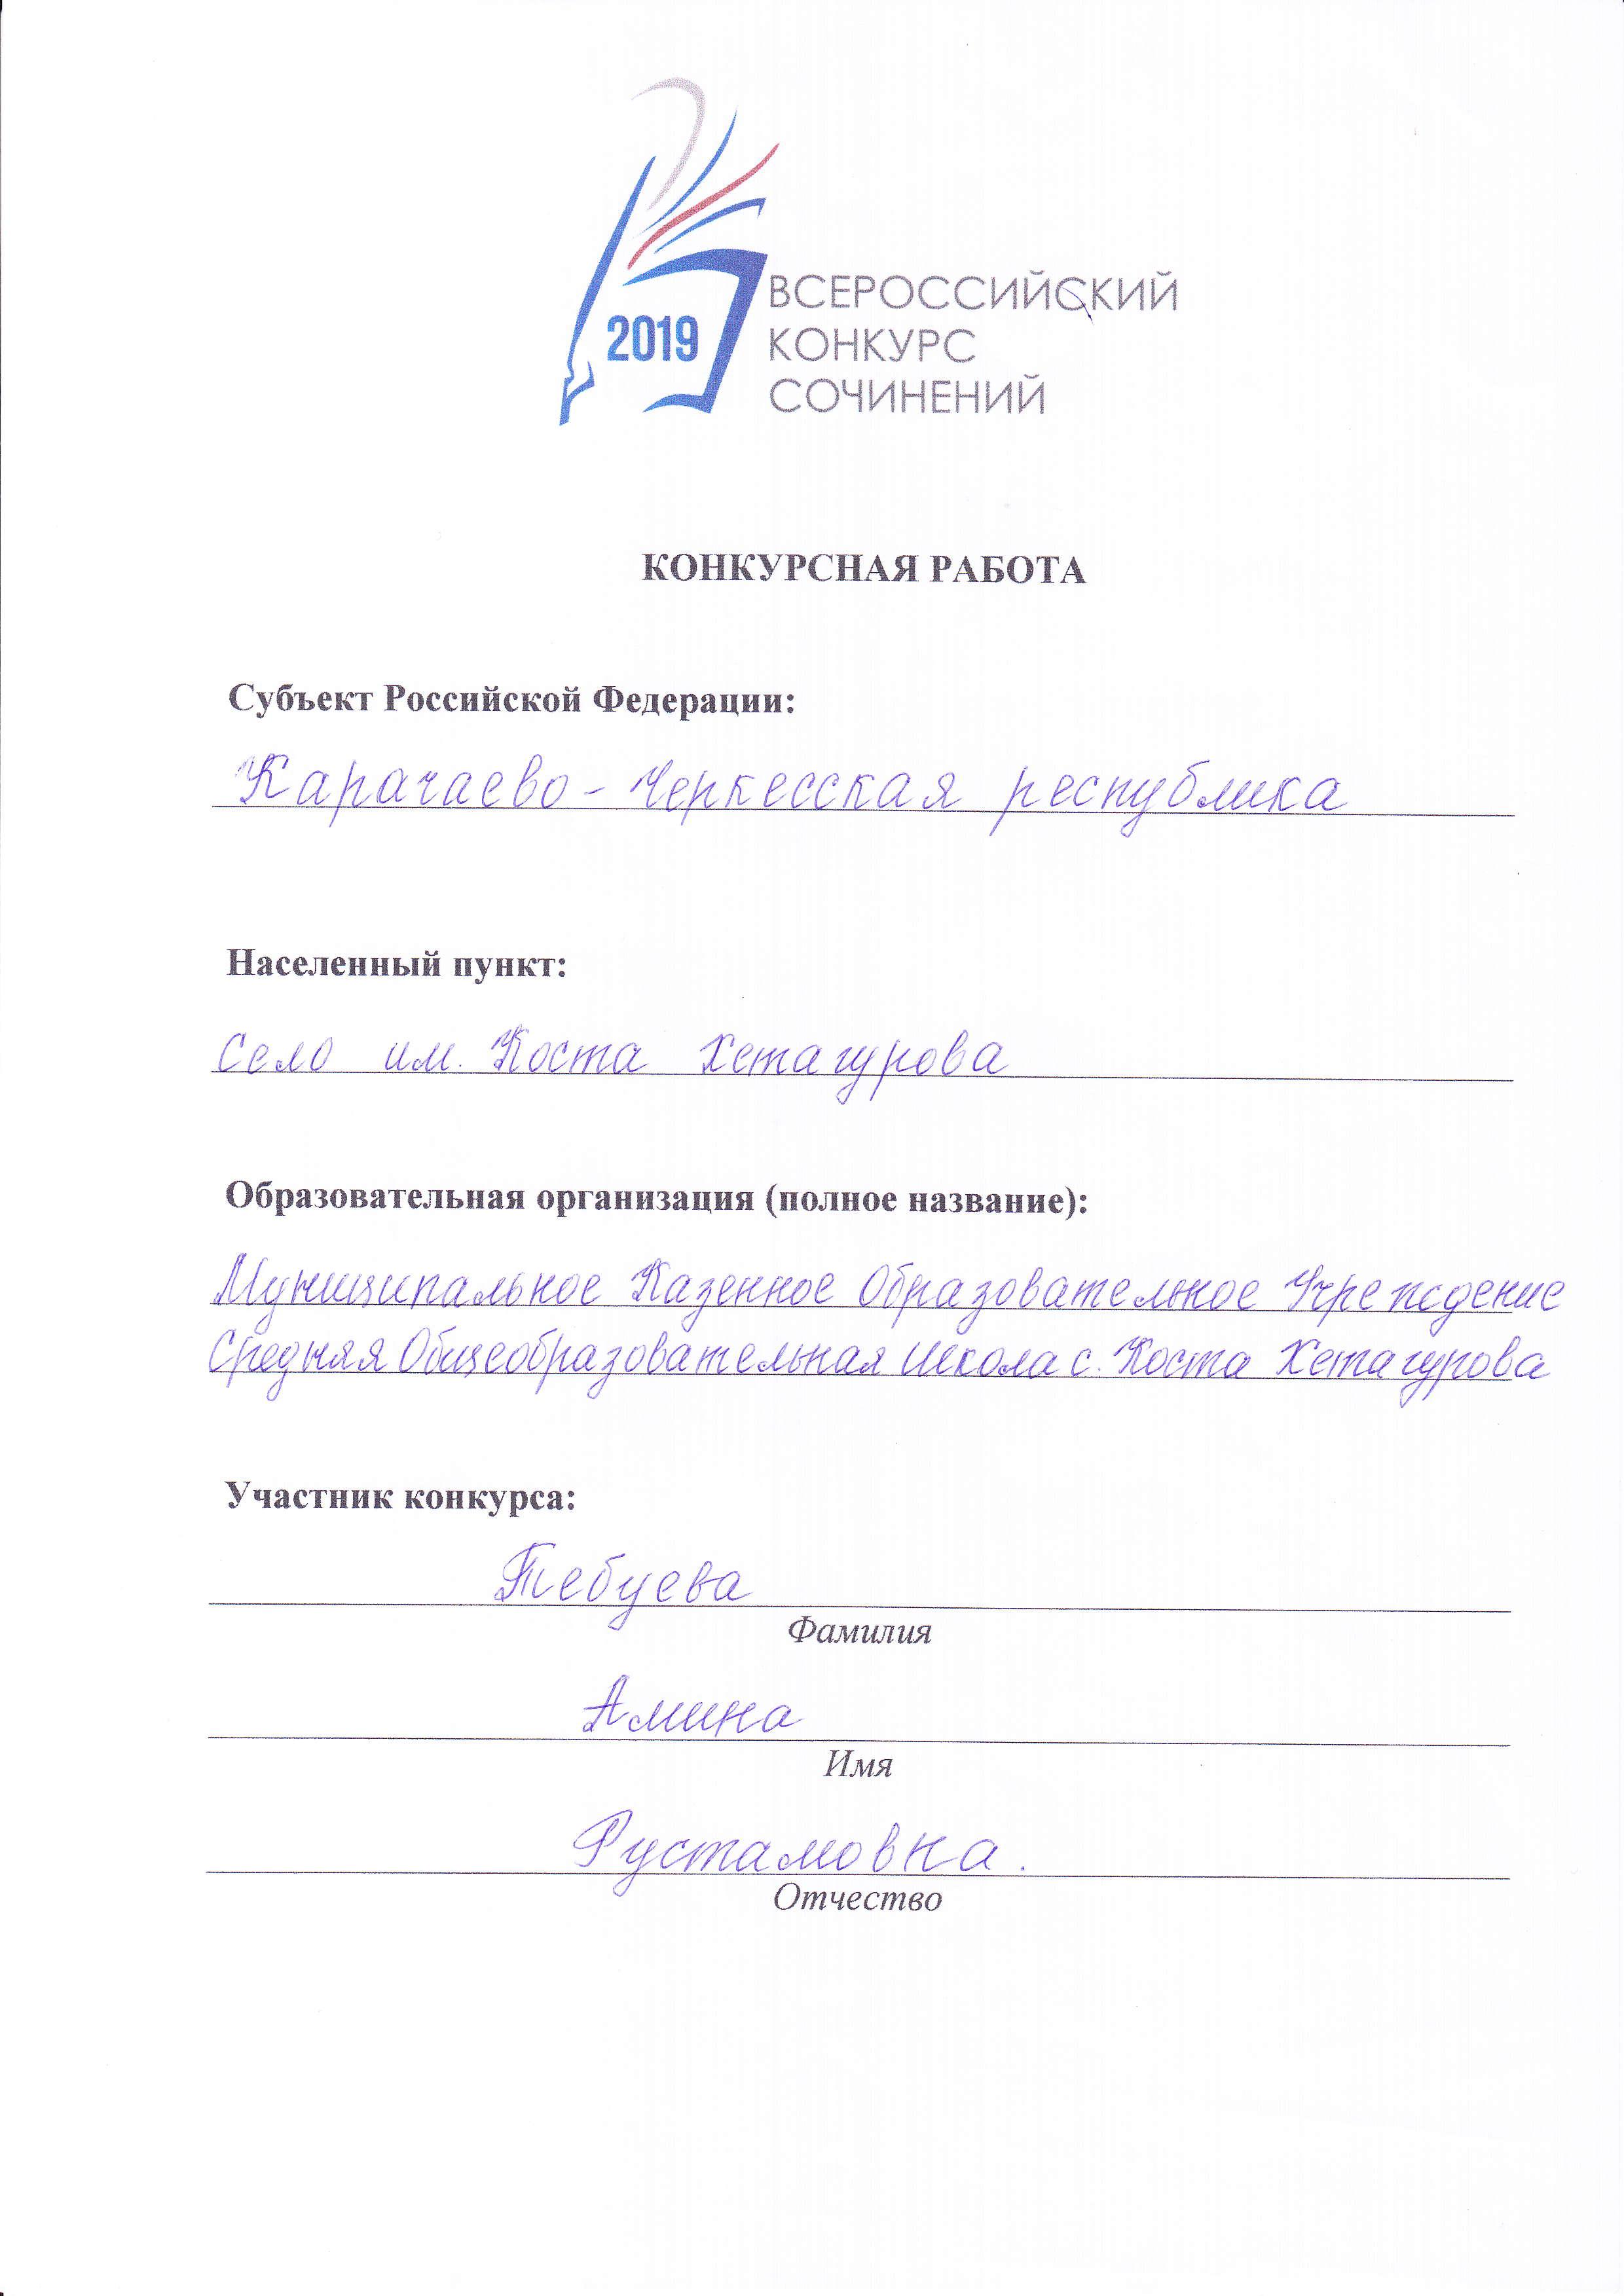 ВСЕРОССИЙСКИЙ
2019 КОНКУРС
СОЧИНЕНИЙ
КОНКУРСНАЯ РАБОТА
Субъект Российской Федерации:
Карачаево-Черкесская республика
Населенный пункт:
село им. Коста Хетагурова
Образовательная организация (полное название):
Муниципальное Казенное Образовательное Учреждение
Средняя Общеобразовательная Школа с. Коста Хетагурова
Участник конкурса:
Тебуева
Фамилия
Амина
Имя
Рустамовна.
Отчество